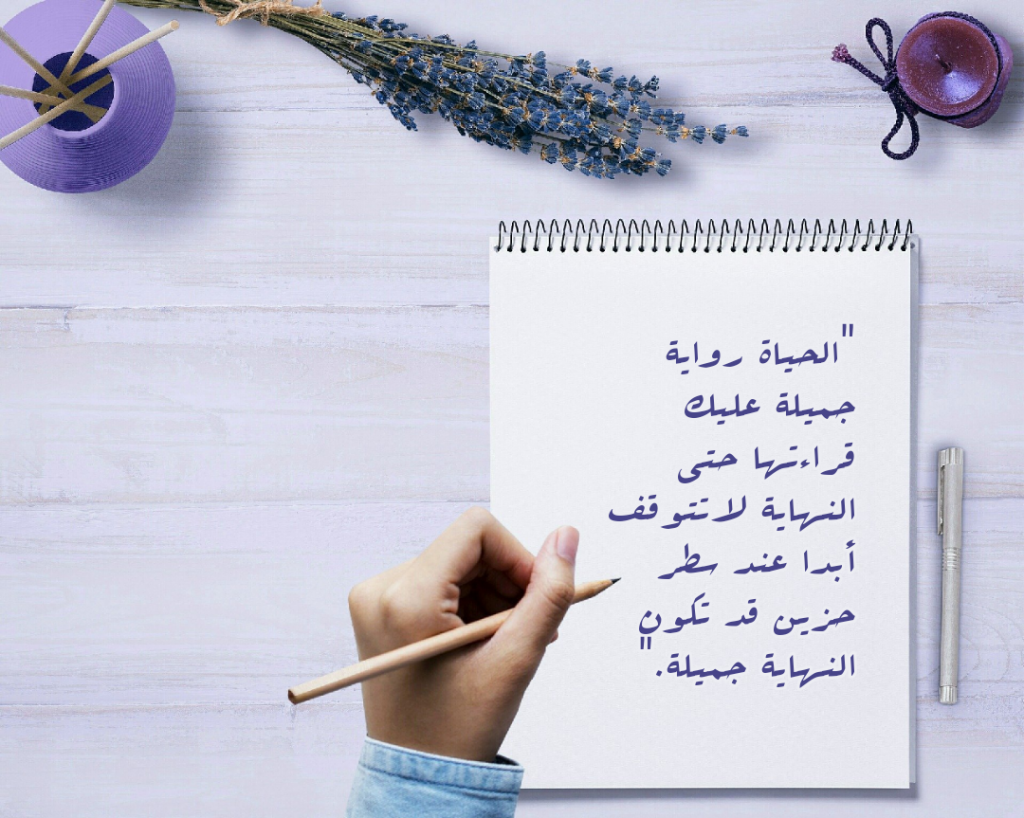 "الحياة رواية
جميلة عليك
قراءتها حتى
النهاية لاتتوقف
أبدا عند سطر
حزين قد تكون
النهاية جميلة."